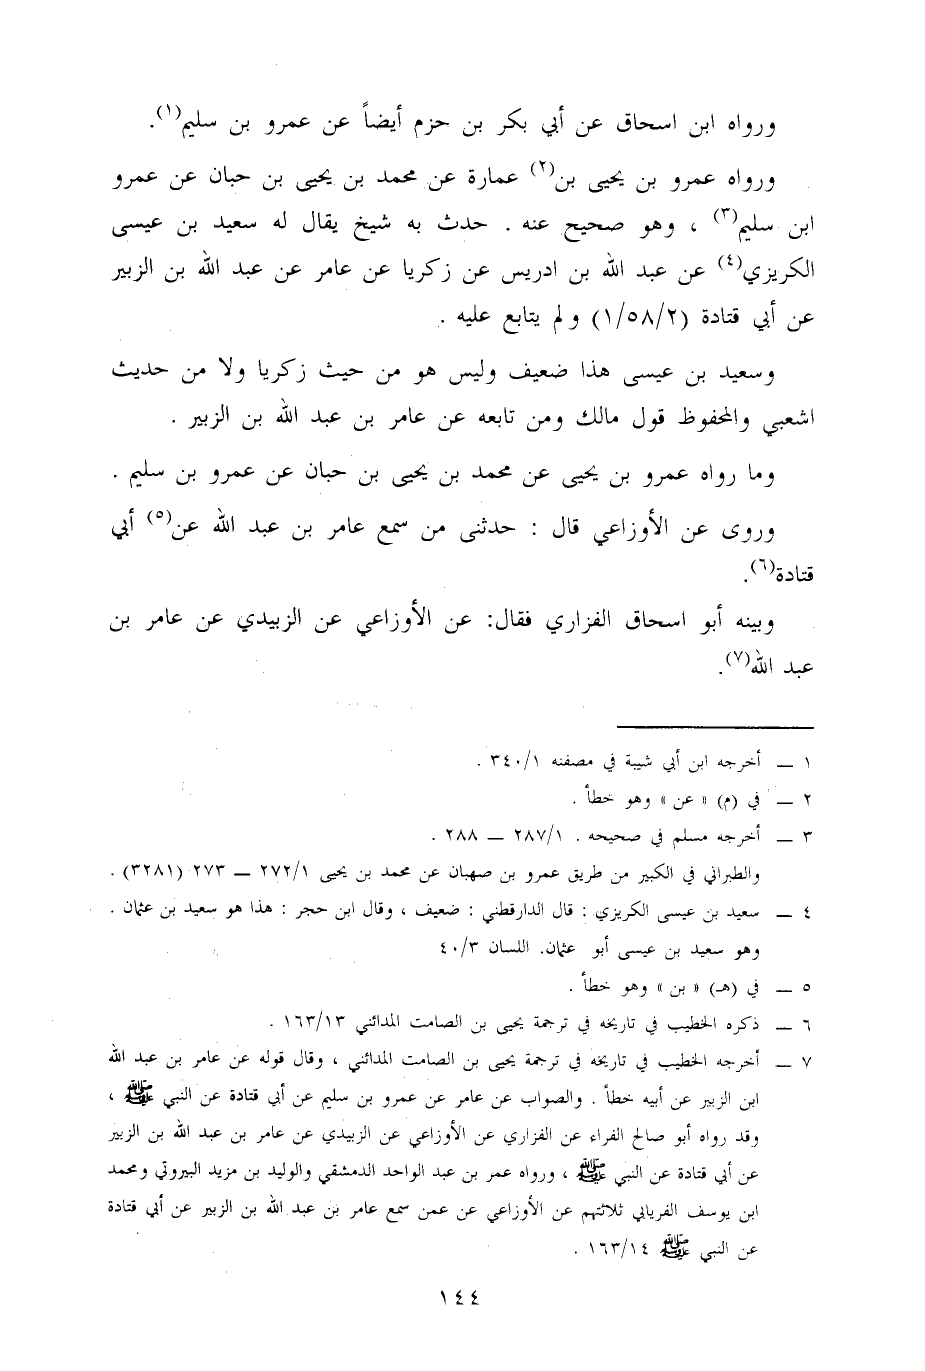 ورواه ابن اسحاق عن أبي بكر بن حزم أيضاً عن عمرو بن سليم(١).
ورواه عمرو بن يحيى بن(٢) عمارة عن محمد بن يحيى بن حبان عن عمرو
ابن سليم(٣) ، وهو صحيح عنه . حدث به شيخ يقال له سعيد بن عيسى
الكريزي(٤) عن عبد الله بن ادريس عن زكريا عن عامر عن عبد الله بن الزبير
عن أبي قتادة (١/٥٨/٢) و لم يتابع عليه .
وسعيد بن عيسى هذا ضعيف وليس هو من حيث زكريا ولا من حديث
اشعبي والمحفوظ قول مالك ومن تابعه عن عامر بن عبد الله بن الزبير .
وما رواه عمرو بن يحيى عن محمد بن يحيى بن حبان عن عمرو بن سليم .
وروى عن الأوزاعي قال : حدثنى من سمع عامر بن عبد الله عن(٥) أبي
قتادة(٦).
وبينه أبو اسحاق الفزاري فقال: عن الأوزاعي عن الزبيدي عن عامر بن
عبد الله(٧).
١ ــ أخرجه ابن أبي شيبة في مصفنه ٣٤٠/١ .
٢ ــ في (م) « عن » وهو خطأ .
٣ ــ أخرجه مسلم في صحيحه . ٢٨٧/١ ــ ٢٨٨ .
والطبراني في الكبير من طريق عمرو بن صهبان عن محمد بن يحيى ٢٧٢/١ ــ ٢٧٣ (٣٢٨١) .
٤ ــ سعيد بن عيسى الكريزي : قال الدارقطني : ضعيف ، وقال ابن حجر : هذا هو سعيد بن عثمان .
وهو سعيد بن عيسى أبو عثمان. اللسان ٤٠/٣
٥ ــ في (هـ) « بن » وهو خطأ .
٦ ــ ذكره الخطيب في تاريخه في ترجمة يحيى بن الصامت المدائني ١٦٣/١٣ .
٧ ــ أخرجه الخطيب في تاريخه في ترجمة يحيى بن الصامت المدائني ، وقال قوله عن عامر بن عبد الله
ابن الزبير عن أبيه خطأ . والصواب عن عامر عن عمرو بن سليم عن أبي قتادة عن النبي ﷺ ،
وقد رواه أبو صالح الفراء عن الفزاري عن الأوزاعي عن الزبيدي عن عامر بن عبد الله بن الزبير
عن أبي قتادة عن النبي ﷺ ، ورواه عمر بن عبد الواحد الدمشقي والوليد بن مزيد البيروتي ومحمد
ابن يوسف الفريابي ثلاثتهم عن الأوزاعي عن عمن سمع عامر بن عبد الله بن الزبير عن أبي قتادة
عن النبي ﷺ ١٦٣/١٤ .
١٤٤